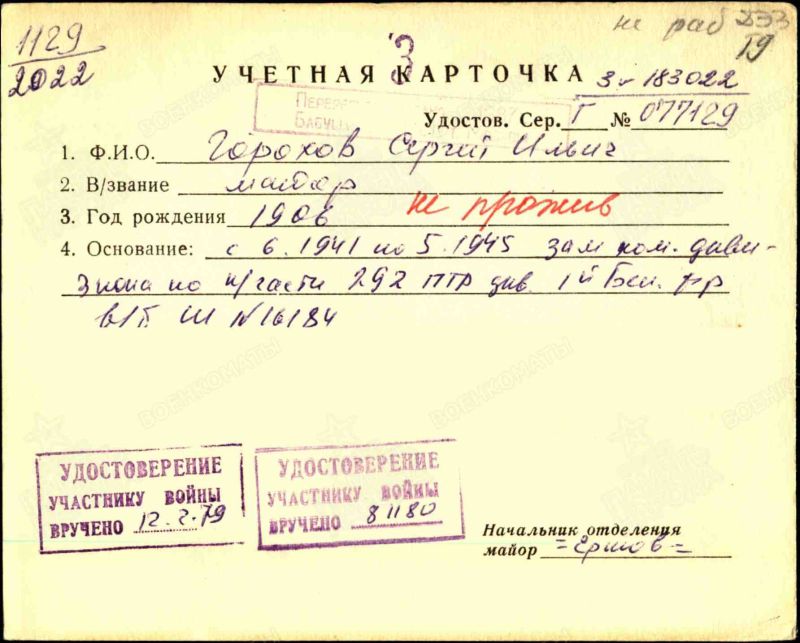 1129
2022
не раб ДЭЗ
19
3
УЧЕТНАЯ КАРТОЧКА 3 v 183022
Удостов. Сер. Г № 077129
1. Ф.И.О. Горохов Сергей Ильич
2. В/звание майор
3. Год рождения 1906 не прожив
4. Основание: с 6.1941 по 5.1945 зам ком. диви-
зиона по п/части 292 ПТР див. 1й Бел. фр
в/б Ш №16184
УДОСТОВЕРЕНИЕ
УЧАСТНИКУ ВОЙНЫ
ВРУЧЕНО 12.2.79
УДОСТОВЕРЕНИЕ
УЧАСТНИКУ ВОЙНЫ
ВРУЧЕНО 81180
Начальник отделения
майор =Ершов=